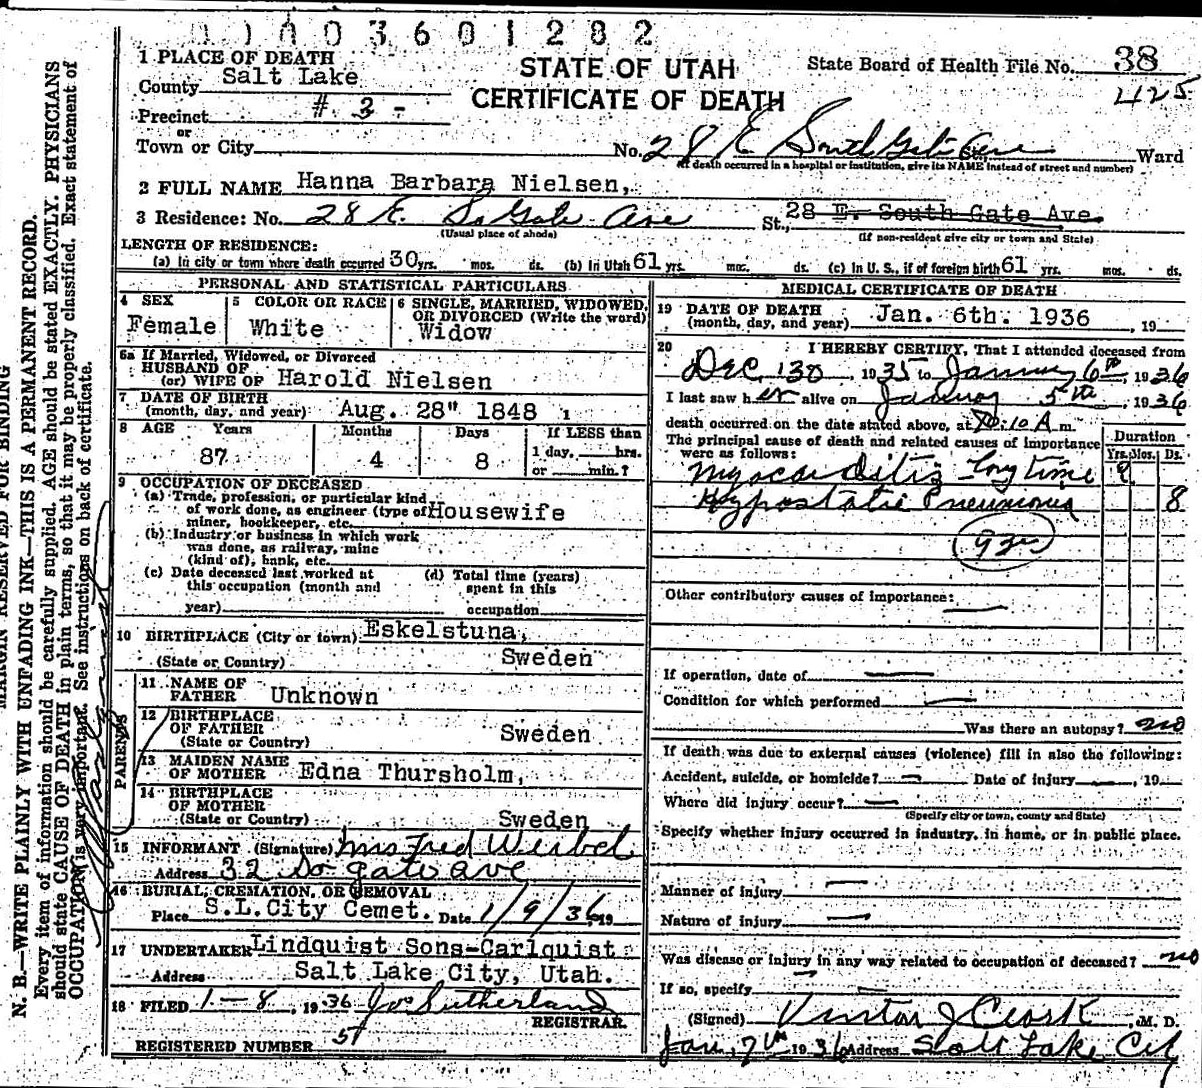 0 1 0 0 3 6 0 1 2 8 2
STATE OF UTAH
CERTIFICATE OF DEATH
State Board of Health File No. 38
425
1 PLACE OF DEATH
County Salt Lake
Precinct # 3 -
or
Town or City
No. 28 E South Gate Ave St., Ward
(If death occurred in a hospital or institution, give its NAME instead of street and number)
2 FULL NAME Hanna Barbara Nielsen,
3 Residence: No. 28 E. So Gate Ave St., 28 E. South Gate Ave.
(Usual place of abode) (If non-resident give city or town and State)
LENGTH OF RESIDENCE:
(a) In city or town where death occurred 30 yrs. mos. ds. (b) In Utah 61 yrs. mos. ds. (c) In U. S., if of foreign birth 61 yrs. mos. ds.
PERSONAL AND STATISTICAL PARTICULARS
4 SEX Female
5 COLOR OR RACE White
6 SINGLE, MARRIED, WIDOWED, OR DIVORCED (Write the word) Widow
6a If Married, Widowed, or Divorced
HUSBAND OF
(or) WIFE OF Harold Nielsen
7 DATE OF BIRTH
(month, day, and year) Aug. 28" 1848
8 AGE Years Months Days If LESS than
87 4 8 1 day, hrs.
or min.?
9 OCCUPATION OF DECEASED
(a) Trade, profession, or particular kind
of work done, as engineer (type of Housewife
miner, bookkeeper, etc.
(b) Industry or business in which work
was done, as railway, mine
(kind of), bank, etc.
(c) Date deceased last worked at
this occupation (month and
year)
(d) Total time (years)
spent in this
occupation
10 BIRTHPLACE (City or town) Eskelstuna,
(State or Country) Sweden
PARENTS
11 NAME OF
FATHER Unknown
12 BIRTHPLACE
OF FATHER Sweden
(State or Country)
13 MAIDEN NAME
OF MOTHER Edna Thursholm,
14 BIRTHPLACE
OF MOTHER
(State or Country) Sweden
15 INFORMANT (Signature) Mrs Fred Weibel
Address 32 So gate ave
16 BURIAL, CREMATION, OR REMOVAL
Place S.L.City Cemet. Date 1/9/36 19
17 UNDERTAKER Lindquist Sons-Carlquist
Address Salt Lake City, Utah.
18 FILED 1-8, 1936 Jos Sutherland
REGISTRAR.
REGISTERED NUMBER 51
MEDICAL CERTIFICATE OF DEATH
19 DATE OF DEATH
(month, day, and year) Jan. 6th. 1936, 19
20 I HEREBY CERTIFY, That I attended deceased from
Dec 130, 1935 to January 6th, 1936
I last saw her alive on January 5th, 1936
death occurred on the date stated above, at 10:10 A m.
The principal cause of death and related causes of importance
were as follows:
Duration
Yrs. Mos. Ds.
Myocarditis - long time ?
Hypostatic Pneumonia 8
Other contributory causes of importance:
If operation, date of
Condition for which performed
Was there an autopsy? no
If death was due to external causes (violence) fill in also the following:
Accident, suicide, or homicide? Date of injury , 19
Where did injury occur?
(Specify city or town, county and State)
Specify whether injury occurred in industry, in home, or in public place.
Manner of injury
Nature of injury
Was disease or injury in any way related to occupation of deceased? no
If so, specify
(Signed) J Clark, M. D.
Jan. 7th 1936 Address Salt Lake City
MARGIN RESERVED FOR BINDING
N. B.—WRITE PLAINLY WITH UNFADING INK—THIS IS A PERMANENT RECORD.
Every item of information should be carefully supplied. AGE should be stated EXACTLY. PHYSICIANS
should state CAUSE OF DEATH in plain terms, so that it may be properly classified. Exact statement of
OCCUPATION is very important. See instructions on back of certificate.